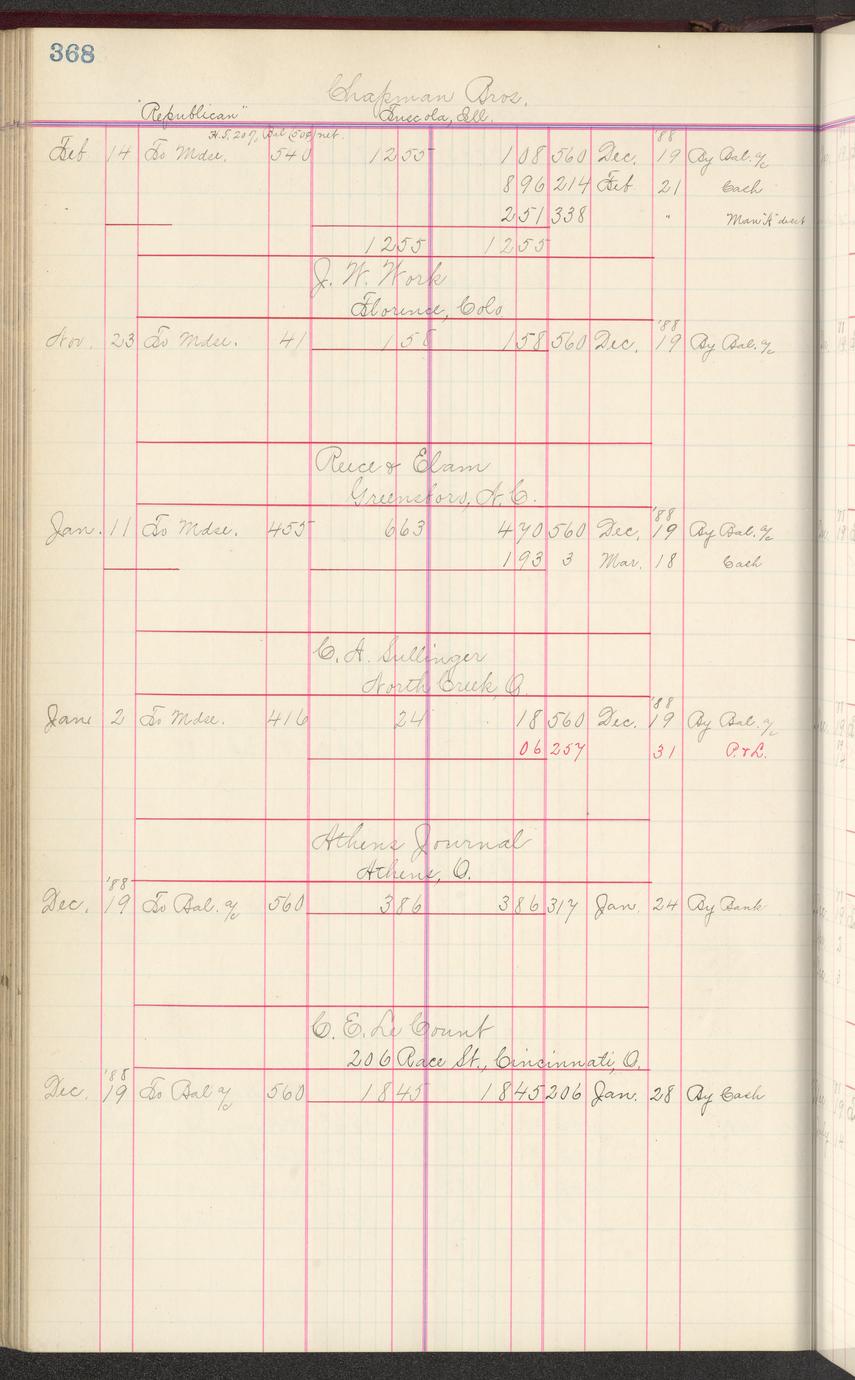 368
Chapman Bros.
"Republican" Tuscola, Ill.
'88
Feb 14 To Mdse. 540 1255 108 560 Dec. 19 By Bal. a/c
896 214 Feb 21 Cash
251 338 " Man "A" disct
1255 1255
J. W. Work
Florence, Colo
'88
Nov. 23 To Mdse. 41 158 158 560 Dec. 19 By Bal. a/c
Reece & Elam
Greensboro, N.C.
'88
Jan. 11 To Mdse. 455 663 470 560 Dec. 19 By Bal. a/c
193 3 Mar. 18 Cash
C. A. Sullinger
North Creek, O.
'88
Jane 2 To Mdse. 416 24 18 560 Dec. 19 By Bal. a/c
06 257 31 P. & L.
Athens Journal
Athens, O.
'88
Dec. 19 To Bal. a/c 560 386 386 317 Jan. 24 By Bank
C. E. Le Count
206 Race St., Cincinnati, O.
'88
Dec. 19 To Bal a/c 560 1845 1845 206 Jan. 28 By Cash